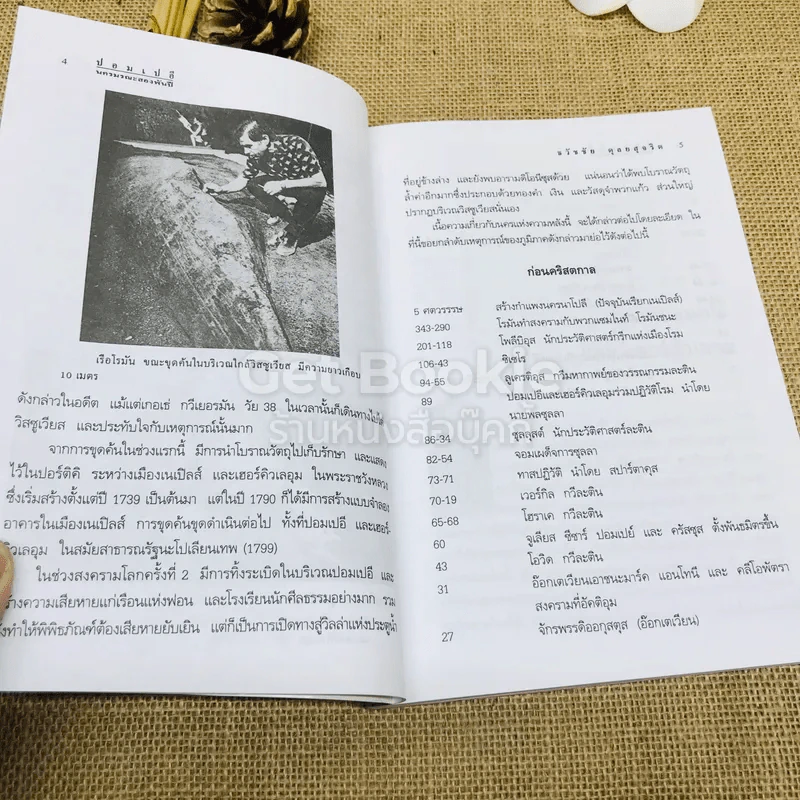 4
ปอมเปอี
นครมรณะสองพันปี
เรือโรมัน ขณะขุดค้นในบริเวณใกล้วิสซูเวียส มีความยาวเกือบ
10 เมตร
ดังกล่าวในอดีต แม้แต่เกอเธ่ กวีเยอรมัน วัย 38 ในเวลานั้นก็เดินทางไปใต้
วิสซูเวียส และประทับใจกับเหตุการณ์นั้นมาก
จากการขุดค้นในช่วงแรกนี้ มีการนำโบราณวัตถุไปเก็บรักษา และแสดง
ไว้ในปอร์ติคิ ระหว่างเมืองเนเปิลส์ และเฮอร์คิวเลอุม ในพระราชวังหลวง
ซึ่งเริ่มสร้างตั้งแต่ปี 1739 เป็นต้นมา แต่ในปี 1790 ก็ได้มีการสร้างแบบจำลอง
อาคารในเมืองเนเปิลส์ การขุดค้นขุดดำเนินต่อไป ทั้งที่ปอมเปอี และเฮอร์-
คิวเลอุม ในสมัยสาธารณรัฐนะโปเลียนเทพ (1799)
ในช่วงสงครามโลกครั้งที่ 2 มีการทิ้งระเบิดในบริเวณปอมเปอี และ
ร้างความเสียหายแก่เรือนแห่งฟอน และโรงเรียนนักศีลธรรมอย่างมาก รวม
ทำให้พิพิธภัณฑ์ต้องเสียหายยับเยิน แต่ก็เป็นการเปิดทางสู่วิลล่าแห่งประตูน้ำ
ธวัชชัย ดุลยสุจริต 5
ที่อยู่ข้างล่าง และยังพบอารามดิโอนีซุสด้วย แน่นอนว่าได้พบโบราณวัตถุ
ล้ำค่าอีกมากซึ่งประกอบด้วยทองคำ เงิน และวัสดุจำพวกแก้ว ส่วนใหญ่
ปรากฏบริเวณวิสซูเวียสนั่นเอง
เนื้อความเกี่ยวกับนครแห่งความหลังนี้ จะได้กล่าวต่อไปโดยละเอียด ใน
ที่นี้ขอยกลำดับเหตุการณ์ของภูมิภาคดังกล่าวมาย่อไว้ดังต่อไปนี้
ก่อนคริสตกาล
5 ศตวรรรษ สร้างกำแพงนครนาโปลี (ปัจจุบันเรียกเนเปิลส์)
343-290 โรมันทำสงครามกับพวกแซมไนท์ โรมันชนะ
201-118 โพลีบิอุส นักประวัติศาสตร์กรีกแห่งเมืองโรม
106-43 ซิเซโร
94-55 ลูเครติอุส กวีมหากาพย์ของวรรณกรรมละติน
89 ปอมเปอีและเฮอร์คิวเลอุมร่วมปฏิวัติโรม นำโดย
นายพลซุลลา
86-34 ซุลลุสต์ นักประวัติศาสตร์ละติน
82-54 จอมเผด็จการซุลลา
73-71 ทาสปฏิวัติ นำโดย สปาร์ตาคุส
70-19 เวอร์กิล กวีละติน
65-68 โฮราเค กวีละติน
60 จูเลียส ซีซาร์ ปอมเปย์ และ ครัสซุส ตั้งพันธมิตรขึ้น
43 โอวิด กวีละติน
31 อ๊อกเตเวียนเอาชนะมาร์ค แอนโทนี และ คลีโอพัตรา
สงครามที่อัคติอุม
27 จักรพรรดิออกุสตุส (อ๊อกเตเวียน)
Get Bookie
ร้านหนังสือบุ๊คกี้